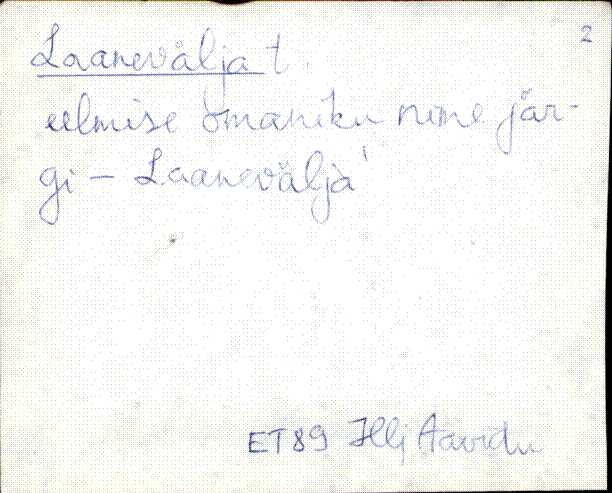 2
Laanevälja t.
eelmise omaniku nime jär-
gi – Laanevälja'
ET 89 Illj Aavidu